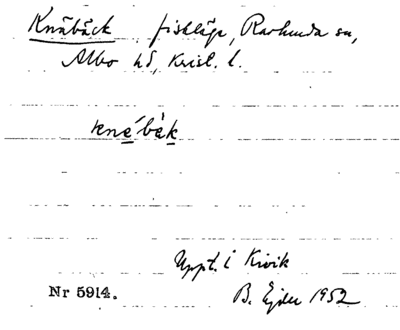 Knäbäck fiskläge, Ravlunda sn,
Albo hd, Krist. l.
knä́bä̀k
Uppt. i Kivik
Nr 5914.
B. Ejder 1952